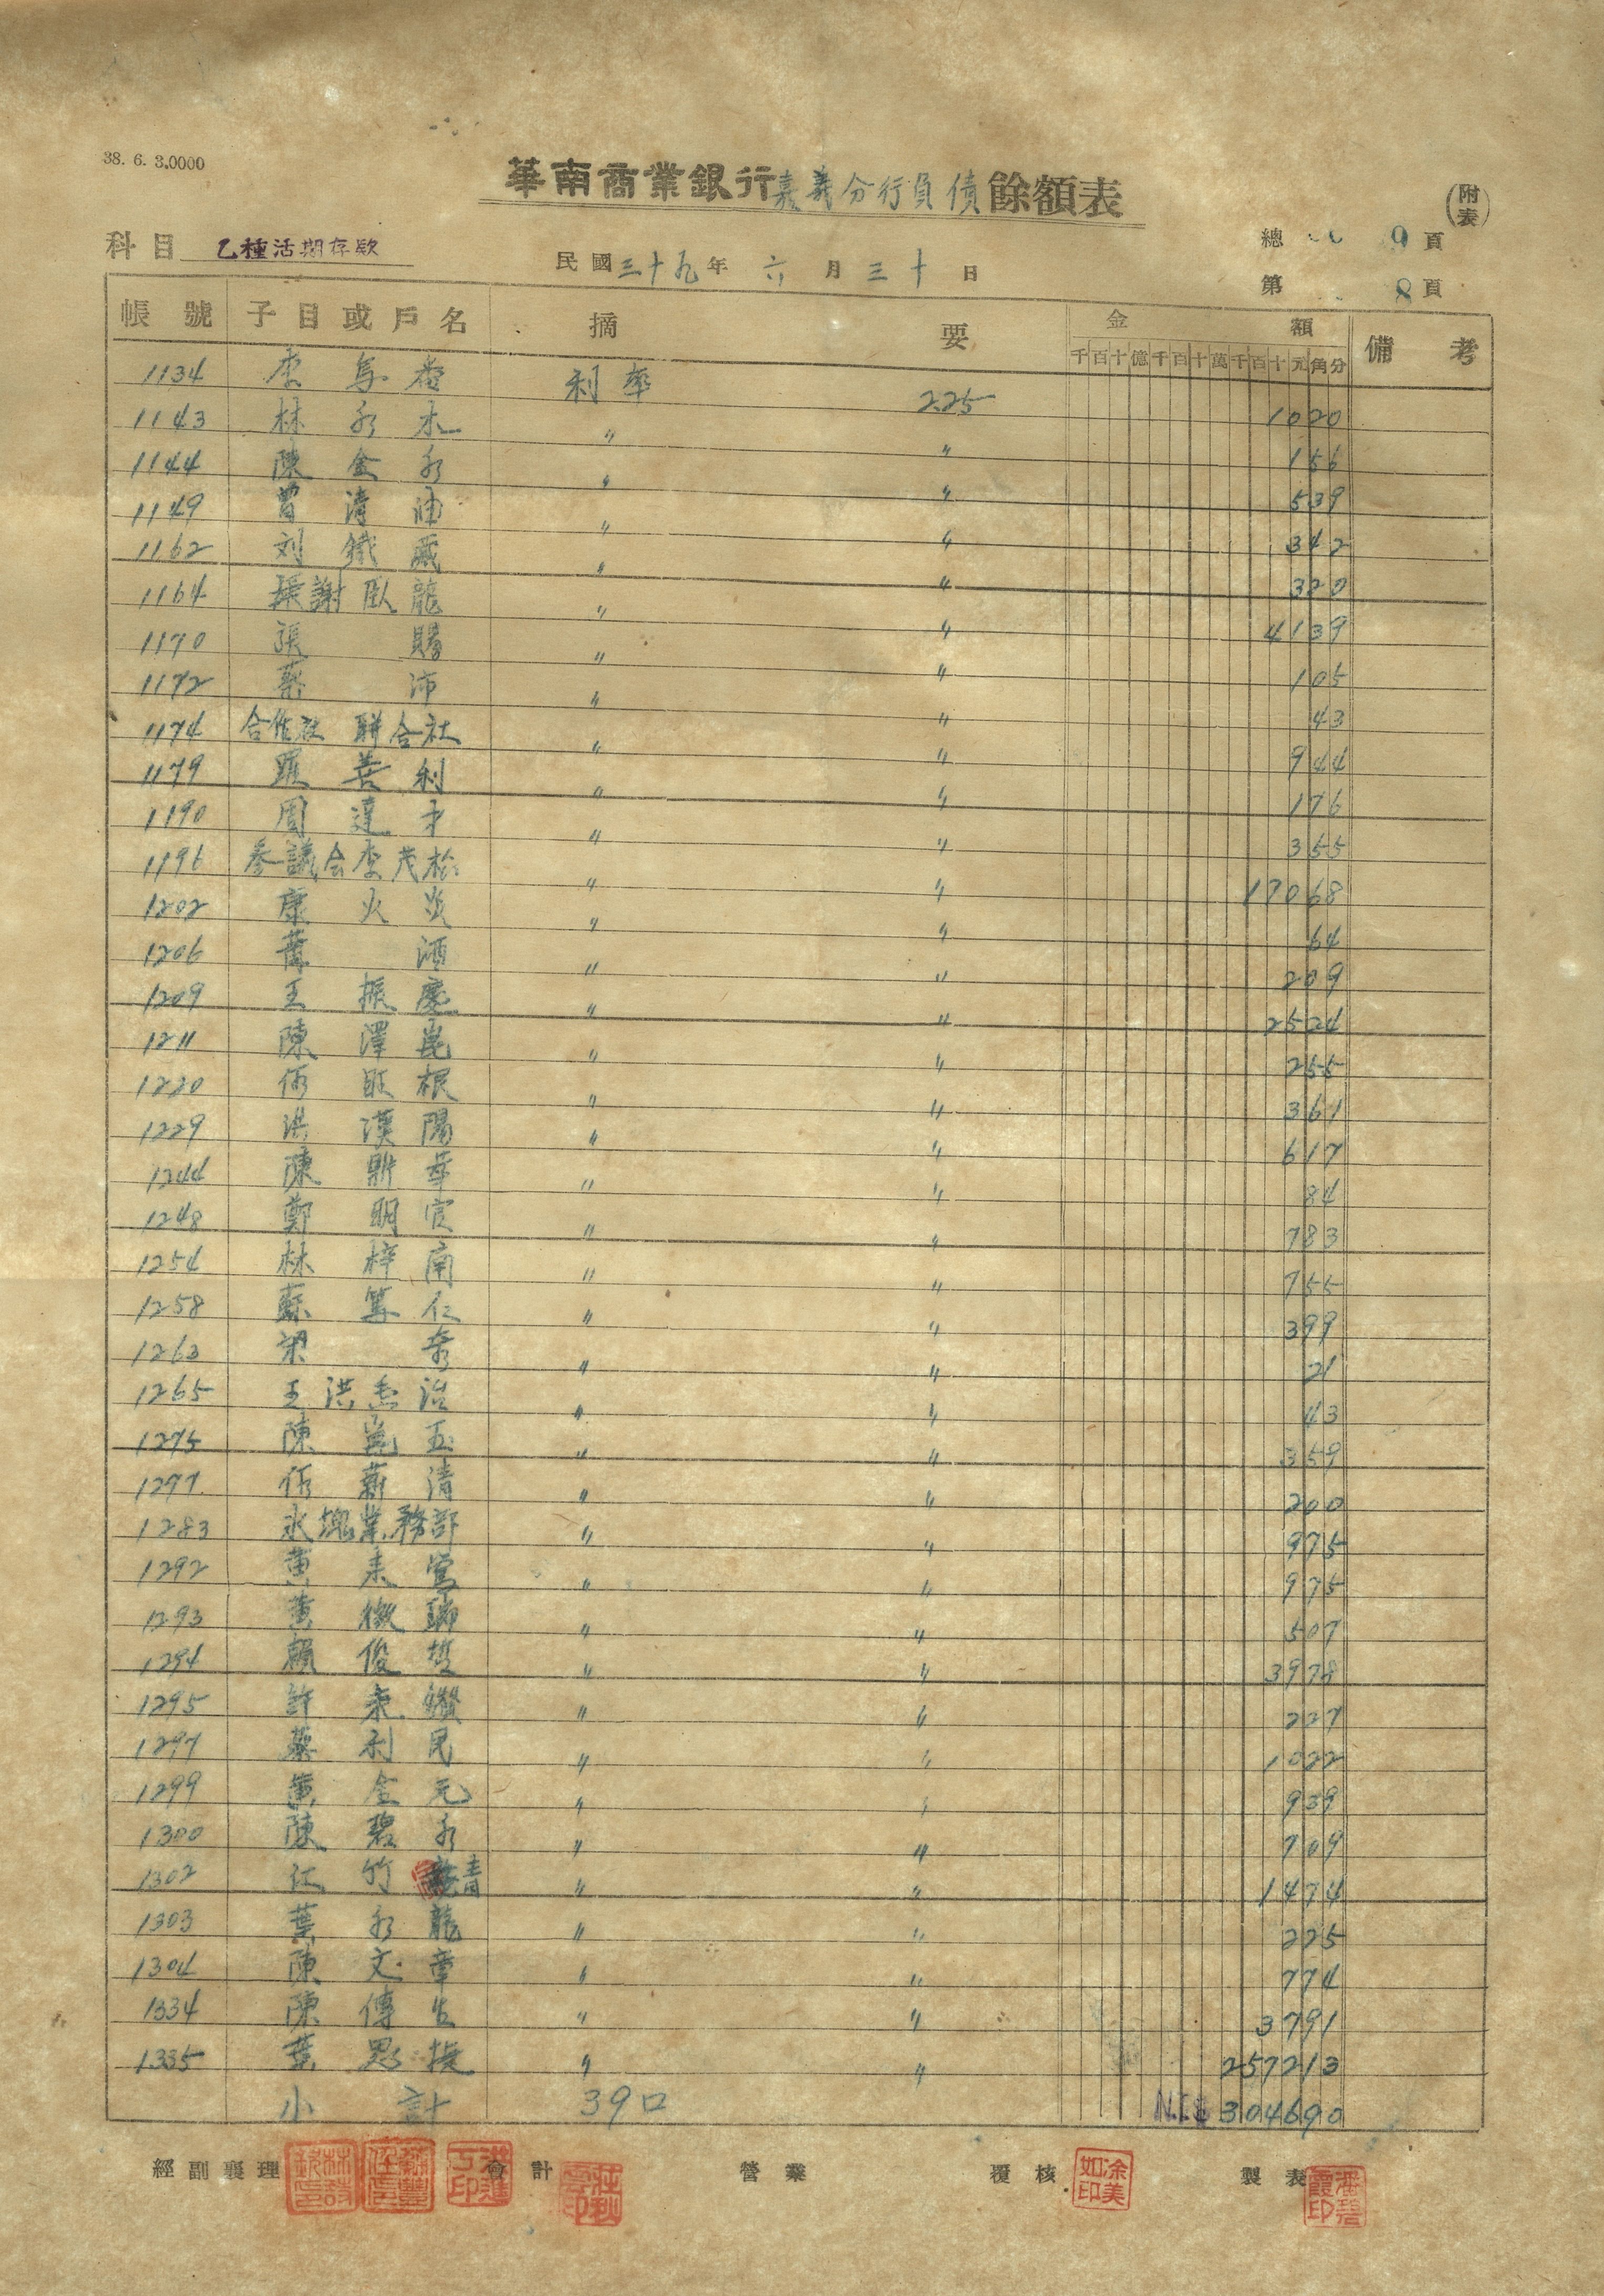 38. 6. 3.0000
華南商業銀行嘉義分行負債餘額表
(附表)
科目 乙種活期存款
民國三十九年 六月三十日
總 9頁
第 8頁
帳號 子目或戶名 摘要 金額 備考
千百十億千百十萬千百十元角分
1134 李 利率 2.25 1020
1143 林永木 〃 〃 156
1144 陳金永 〃 〃 539
1149 曾清 〃 〃 342
1162 刘鐵 〃 〃 320
1164 張謝臥龍 〃 〃 4139
1170 張賜 〃 〃 105
1172 蔡沛 〃 〃 43
1174 合作社聯合社 〃 〃 944
1179 羅善利 〃 〃 176
1190 周達才 〃 〃 355
1196 参議会李茂松 〃 〃 17068
1202 康火炎 〃 〃 64
1206 葉酒 〃 〃 209
1209 王振慶 〃 〃 2524
1211 陳澤崑 〃 〃 255
1220 何旺根 〃 〃 361
1229 洪漢陽 〃 〃 617
1244 陳鼎華 〃 〃 84
1248 鄭明官 〃 〃 783
1254 林梓南 〃 〃 755
1258 蘇算仁 〃 〃 399
1263 梁 〃 〃 21
1265 王洪治 〃 〃 43
1275 陳崑玉 〃 〃 359
1277 何薪清 〃 〃 200
1283 業務部 〃 〃 975
1292 黄 〃 〃 975
1293 黄 瑞 〃 〃 507
1294 賴俊哲 〃 〃 3978
1295 許 〃 〃 227
1297 蔡利民 〃 〃 1022
1299 黄金元 〃 〃 939
1300 陳碧永 〃 〃 709
1302 江竹青 〃 〃 1474
1303 葉永龍 〃 〃 225
1304 陳文章 〃 〃 774
1334 陳傳生 〃 〃 3791
1335 葉思振 〃 〃 257213
小計 39口 N.T.$ 304690
經副襄理 會計 營業 覆核 涂美如印 製表 潘碧霞印